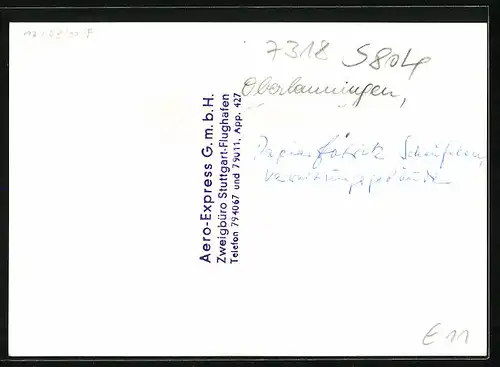 7318 S804
Oberlenningen,
Papierfabrik Scheufelen,
Verwaltungsgebäude
Aero-Express G.m.b.H.
Zweigbüro Stuttgart-Flughafen
Telefon 794067 und 79011, App. 427
E 11